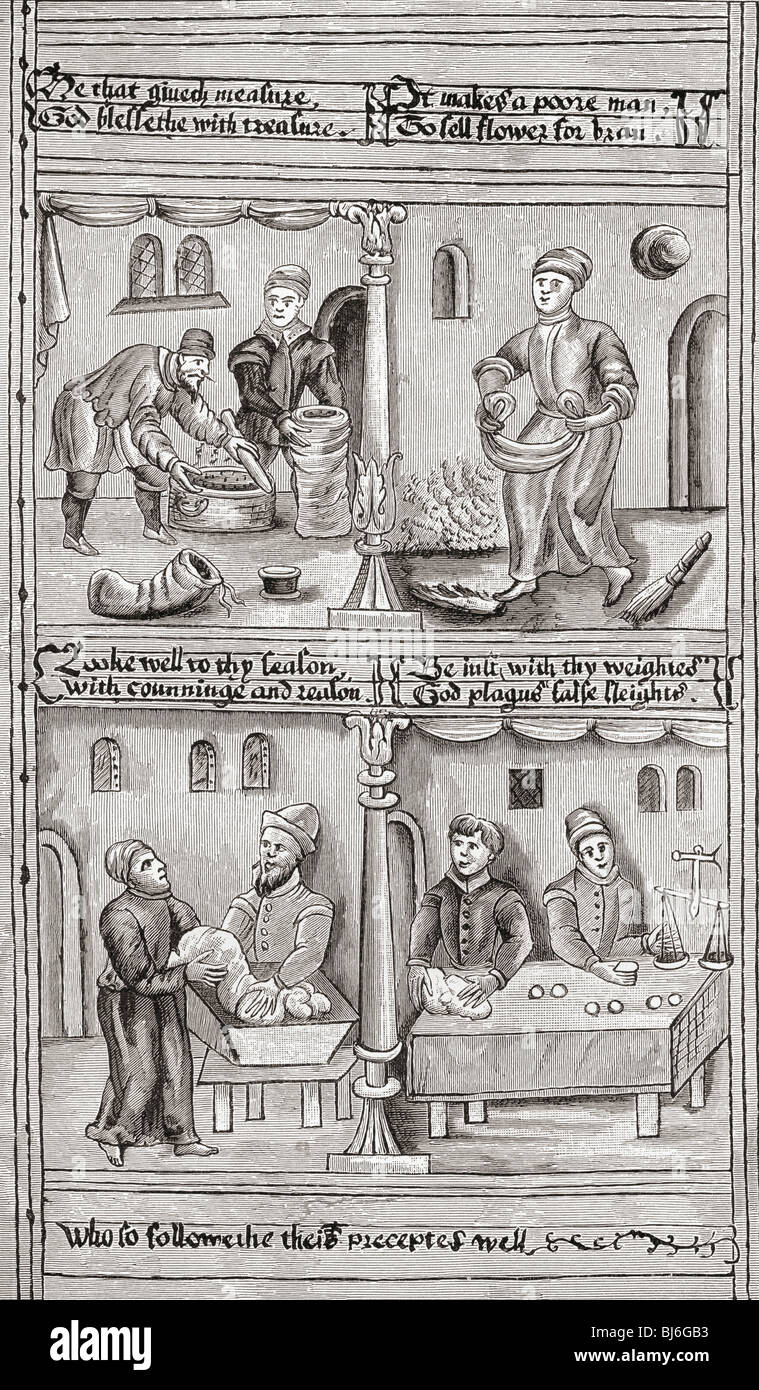 He that giueth measure,
God blessethe with treasure.
It makes a poore man,
To sell flower for bran.
Looke well to thy season,
with counninge and reason.
Be iust, with thy weightes
God plagus false sleights.
Who so followethe theis preceptes well
alamy stock photo
BJ6GB3
www.alamy.com